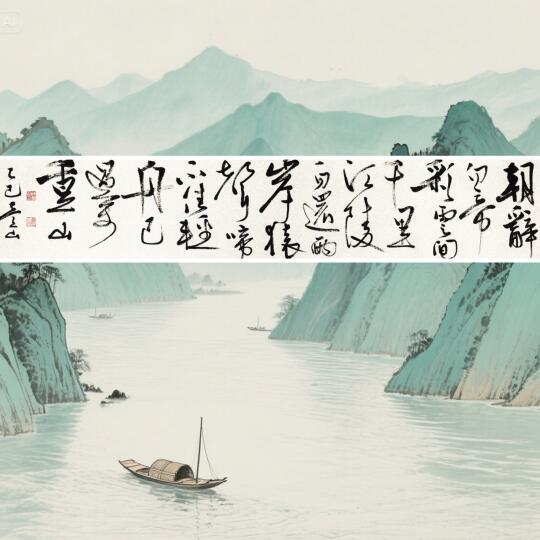 朝辭
白帝
彩雲間
千里
江陵
一日還兩
岸猿
聲啼
不住輕
舟已
過萬
重山
乙巳
AI